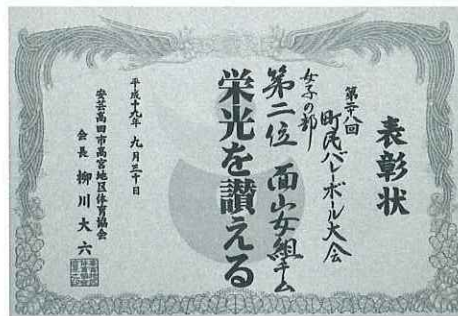 表彰状
第廿八回
町民バレーボール大会
女子の部
第二位 面山女組チーム
栄光を讃える
平成十九年 九月三十日
安芸高田市高宮地区体育協会
会長 柳川大六